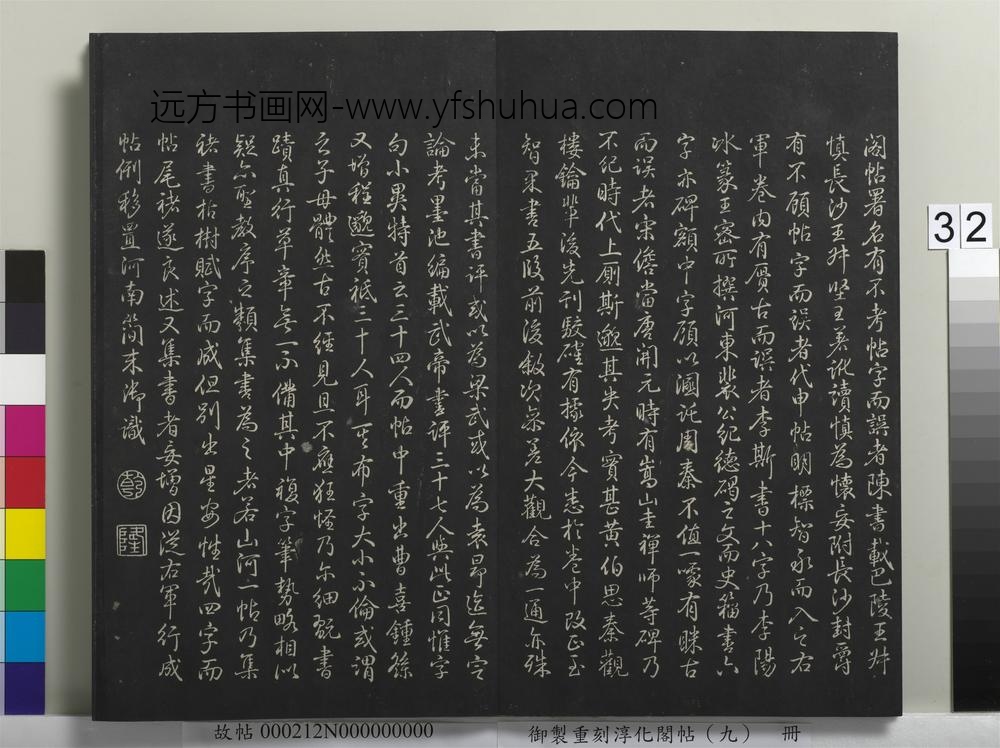 远方书画网-www.yfshuhua.com
閣帖署名有不考帖字而誤者陳書載巴陵王叔
慎長沙王叔堅王著訛讀慎為懷妄附長沙封爵
有不顧帖字而誤者代申帖明標智永而入之右
軍卷內有厪古而誤者李斯書十八字乃李陽
冰篆王密所撰河東裴公紀德碣之文而史籀書六
字亦碑額中字顧以濔訛周秦不值一噱有昧古
而誤者宋儋當唐開元時有嵩山圭禪師等碑乃
不紀時代上廁斯邈其失考實甚黃伯思秦觀
樓鑰輩後先刊駮確有據依今悉於卷中改正至
智果書五段前後敘次參差大觀合為一通亦殊
未當其書評或以為梁武或以為袁昂迄無定
論考墨池編載武帝書評三十七人與此正同惟字
句小異特首云三十四人而帖中重出曹喜鍾繇
又增程邈實祗三十人耳至布字大小不倫或謂
云子母體然古不經見且不應狂怪乃爾細翫書
蹟真行草章無一不備其中複字筆勢略相似
疑亦聖教序之類集書為之者若山河一帖乃集
褚書枯樹賦字而成但別出星安性哉四字而
帖尾褚遂良述又集書者妄增因從右軍行成
帖例移置河南簡末御識
乾
隆
32
故帖 000212N000000000
御製重刻淳化閣帖（九） 冊